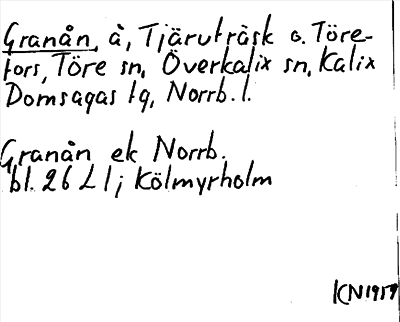 Granån, å, Tjäruträsk o. Töre-
fors, Töre sn, Överkalix sn, Kalix
Domsagas tg, Norrb. l.
Granån ek Norrb.
bl. 26 L l; Kölmyrholm
KN 1959